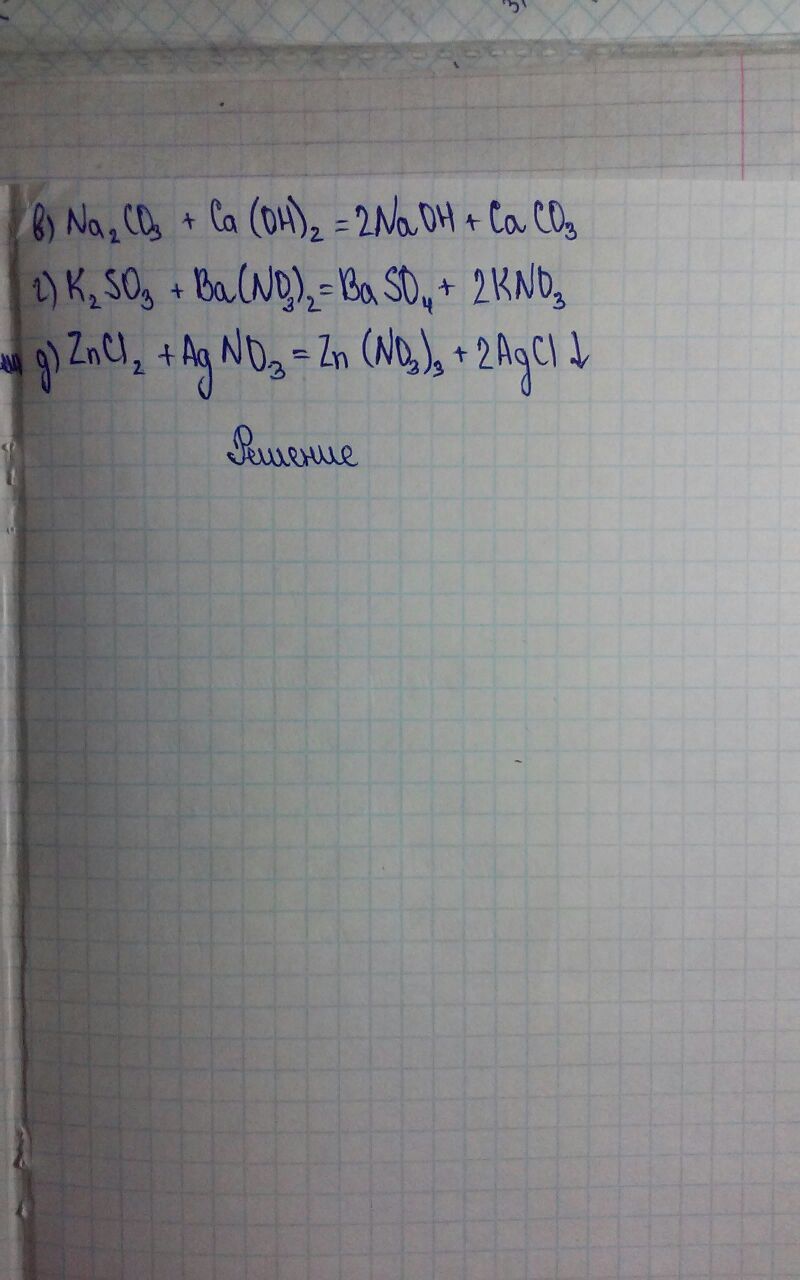 в) Na₂CO₃ + Ca(OH)₂ = 2NaOH + CaCO₃
г) K₂SO₃ + Ba(NO₃)₂ = BaSO₄ + 2KNO₃
д) ZnCl₂ + AgNO₃ = Zn(NO₃)₃ + 2AgCl↓
Решение